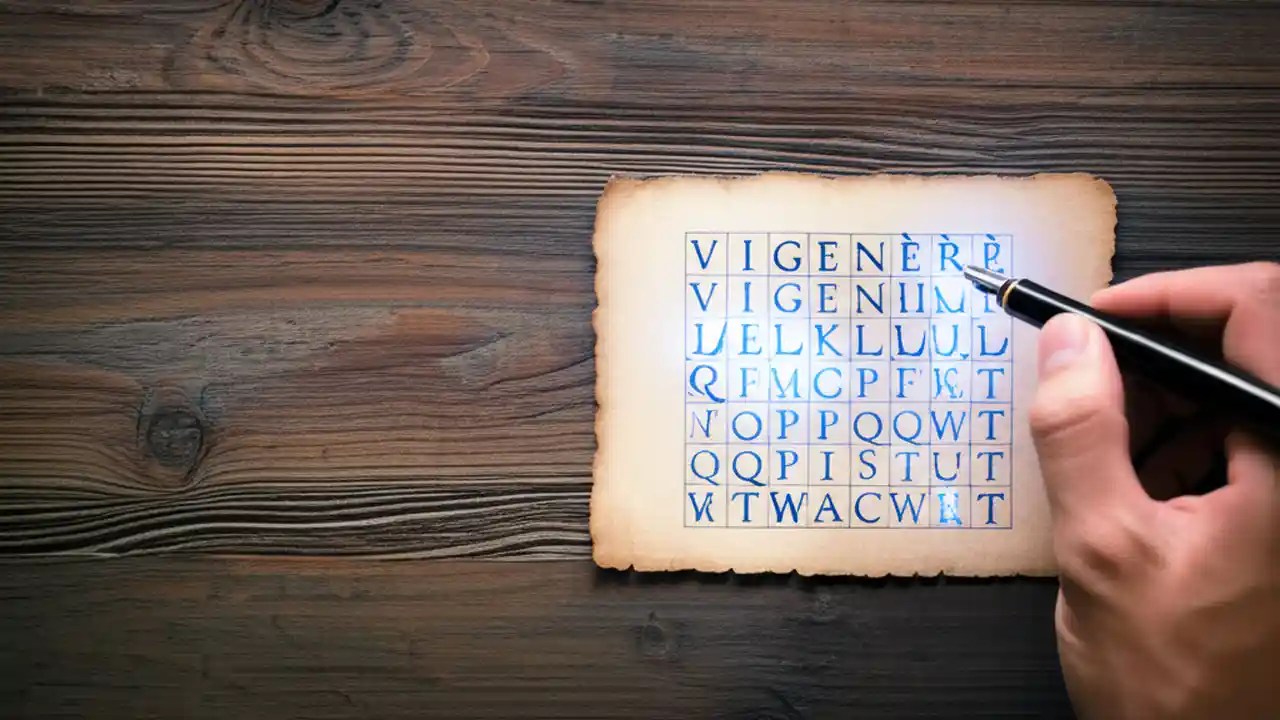 V I G E N È R È
V I G E N
E L K L L U L
Q F M C P F K T
N O P P Q Q W T
Q Q P I S T U T
T W A C W T